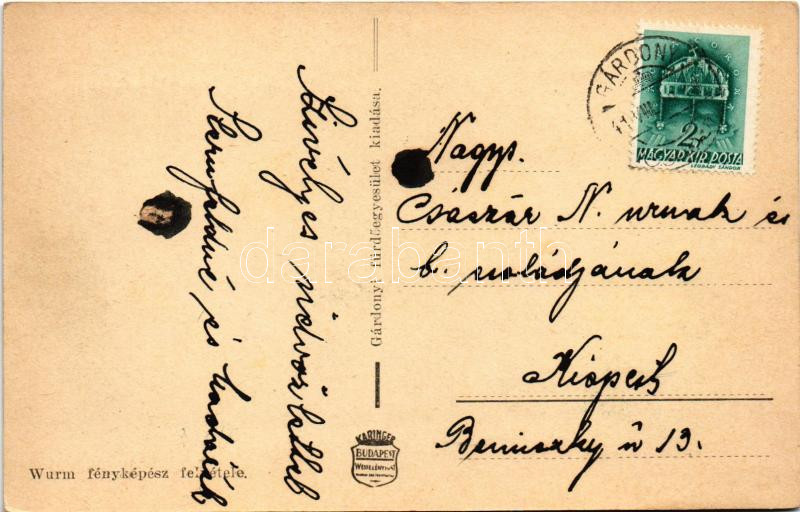 Szívélyes üdvözlettel
Sternfeldné és családja
Gárdonyi fürdőegyesület kiadása.
GÁRDONY
KORONA
2f
MAGYAR KIR. POSTA
LÉGRÁDY SÁNDOR
Nagys.
Császár N. urnak és
b. családjának
Kispest
Beniczky u 13.
KARINGER
BUDAPEST
WESSELÉNYI U
Wurm fényképész felvétele.
darabanth